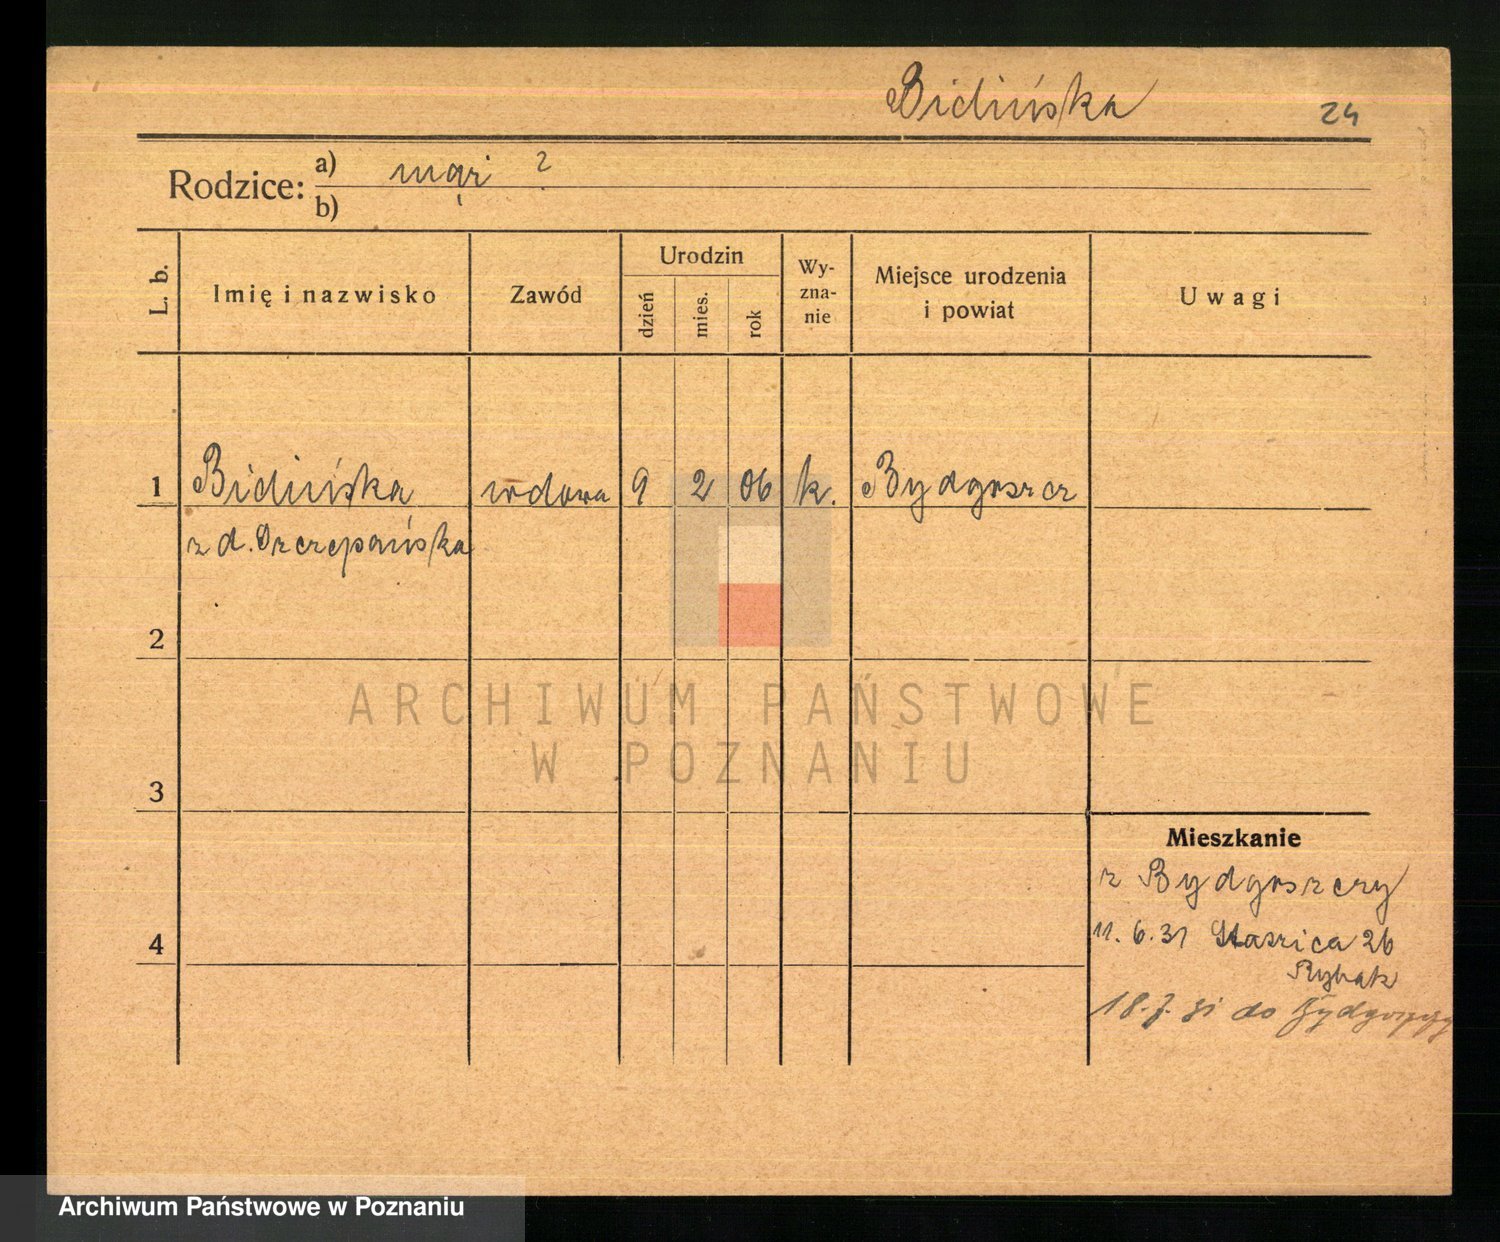 Bidińska 24
Rodzice: a) mąż ?
b)
L. b. Imię i nazwisko Zawód Urodzin dzień mies. rok Wy-zna-nie Miejsce urodzenia i powiat Uwagi
1 Bidińska wdowa 9 2 06 k. Bydgoszcz
z d. Szczepańska
2
ARCHIWUM PAŃSTWOWE
W POZNANIU
3
Mieszkanie
z Bydgoszczy
11. 6. 31 Staszica 26
Rybak
4
18. 7. 31 do Bydgoszczy
Archiwum Państwowe w Poznaniu